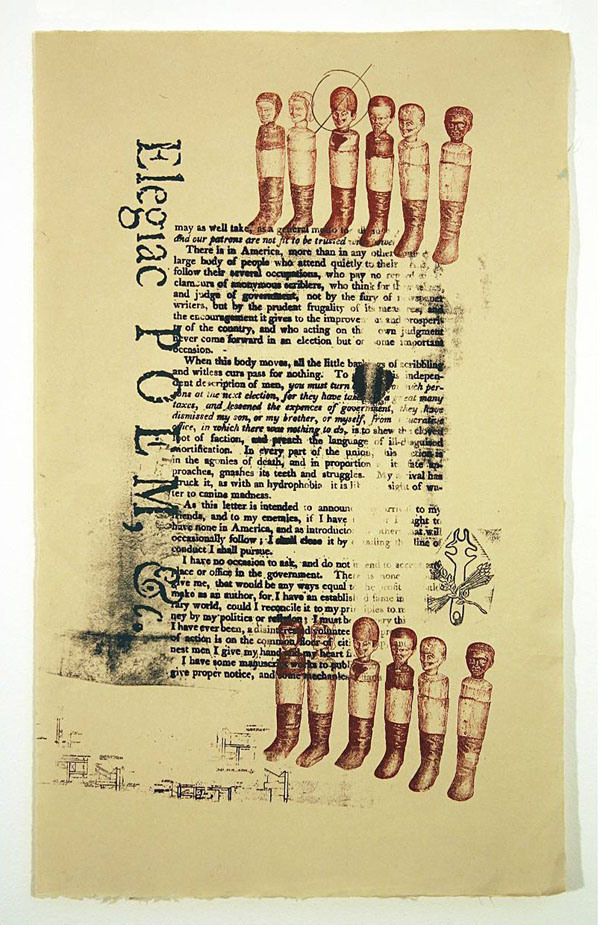 Elegiac POEM, &c.
may as well take, as a general motto to
and our patrons are not fit to be trusted
There is in America, more than in any other
large body of people who attend quietly to their
follow their several occupations, who pay no
clamours of anonymous scriblers, who think for
and judge of government, not by the fury of
writers, but by the prudent frugality of its
the encouragement it gives to the improvement and prosperity
of the country, and who acting on their own judgment
never come forward in an election but on some important
occasion.
When this body moves, all the little barkings of scribbling
and witless curs pass for nothing. To indepen-
dent description of men, you must turn such per-
sons at the next election, for they have taken a great many
taxes, and lessened the expences of government, they have
dismissed my son, or my brother, or myself, from
office, in which there was nothing to do, is to shew the cloven
foot of faction, and preach the language of ill-disguised
mortification. In every part of the union, this faction is
in the agonies of death, and in proportion as its fate ap-
proaches, gnashes its teeth and struggles. My arrival has
struck it, as with an hydrophobia it is like sight of wa-
ter to canine madness.
As this letter is intended to announce my arrival to my
friends, and to my enemies, if I have I ought to
have none in America, and as introductory others that will
occasionally follow; I shall close it by detailing the line of
conduct I shall pursue.
I have no occasion to ask, and do not intend to accept any
place or office in the government. There is none
give me, that would be any ways equal to the profit
make as an author, for I have an established fame in
rary world, could I reconcile it to my principles to
ney by my politics or religion; I must be every
I have ever been, a disinterested volunteer
of action is on the common floor of
nest men I give my hand and my heart
I have some manuscript works to publish
give proper notice, and some mechanical